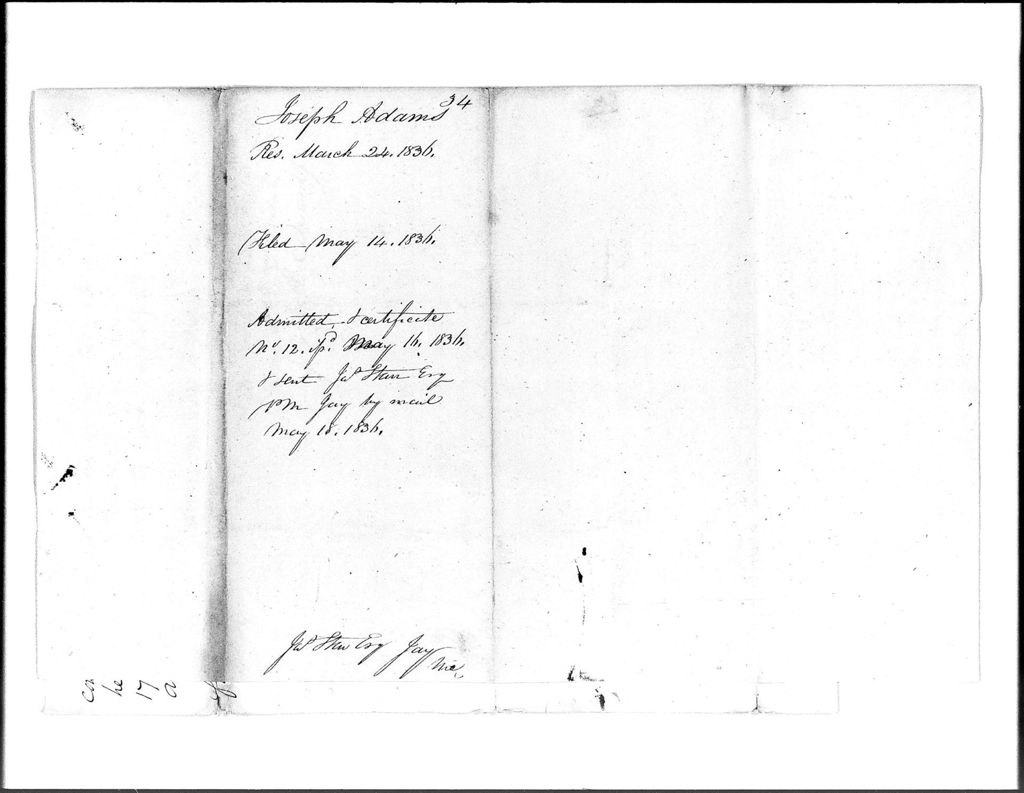 34
Joseph Adams
Res. March 24. 1836.
Filed May 14. 1836.
Admitted, & certificate
No. 12. isd. May 16. 1836.
& sent Jas Starr Esq
PM Jay by mail
May 18. 1836.
Jas Starr Esq Jay
Me.
co
he
17
a
of